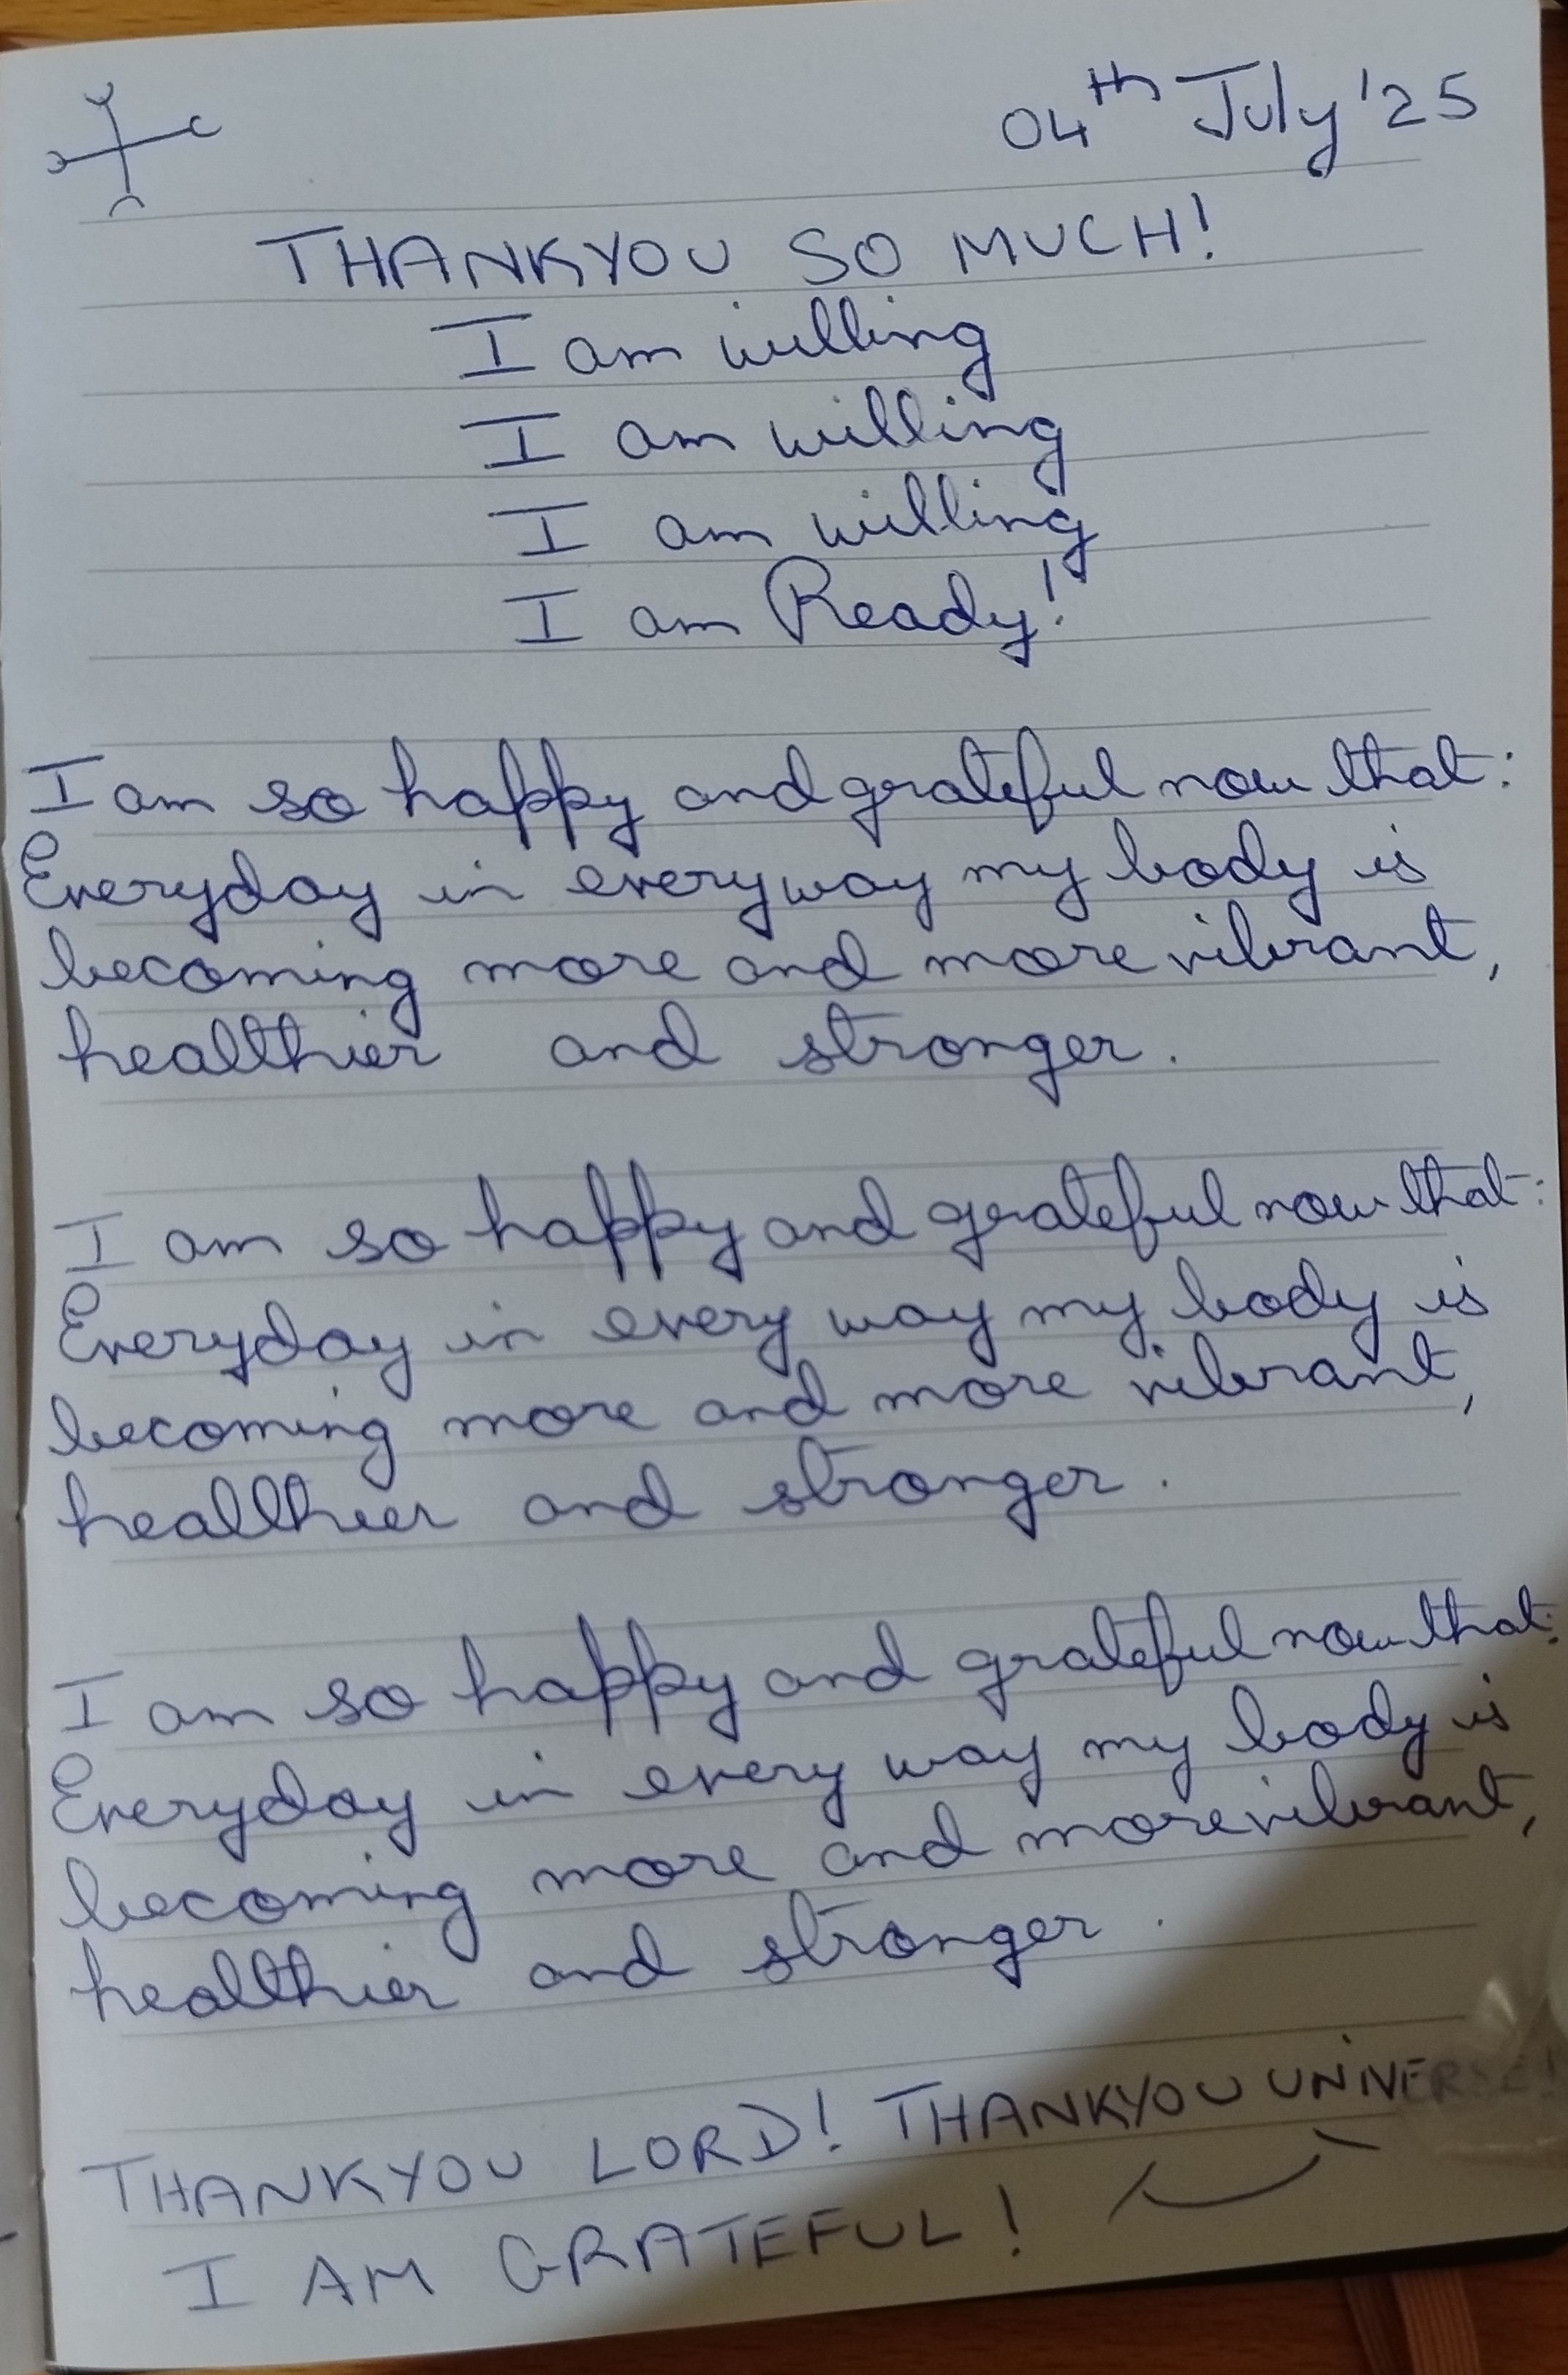 04th July '25
THANKYOU SO MUCH!
I am willing
I am willing
I am willing
I am Ready!
I am so happy and grateful now that:
Everyday in every way my body is
becoming more and more vibrant,
healthier and stronger.
I am so happy and grateful now that:
Everyday in every way my body is
becoming more and more vibrant,
healthier and stronger.
I am so happy and grateful now that:
Everyday in every way my body is
becoming more and more vibrant,
healthier and stronger.
THANKYOU LORD! THANKYOU UNIVERSE!
I AM GRATEFUL!